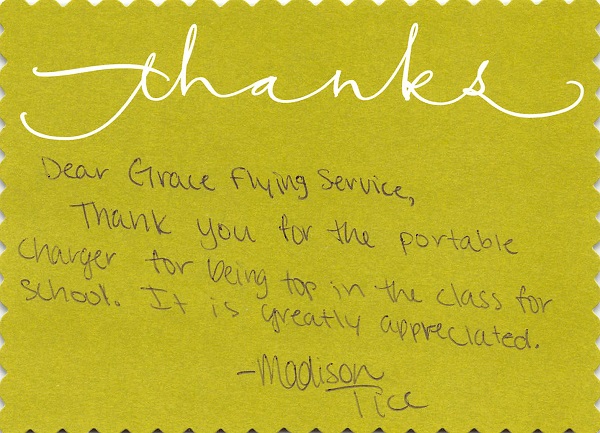 thanks
Dear Grace Flying Service,
Thank you for the portable
charger for being top in the class for
school. It is greatly appreciated.
-Madison
Tice